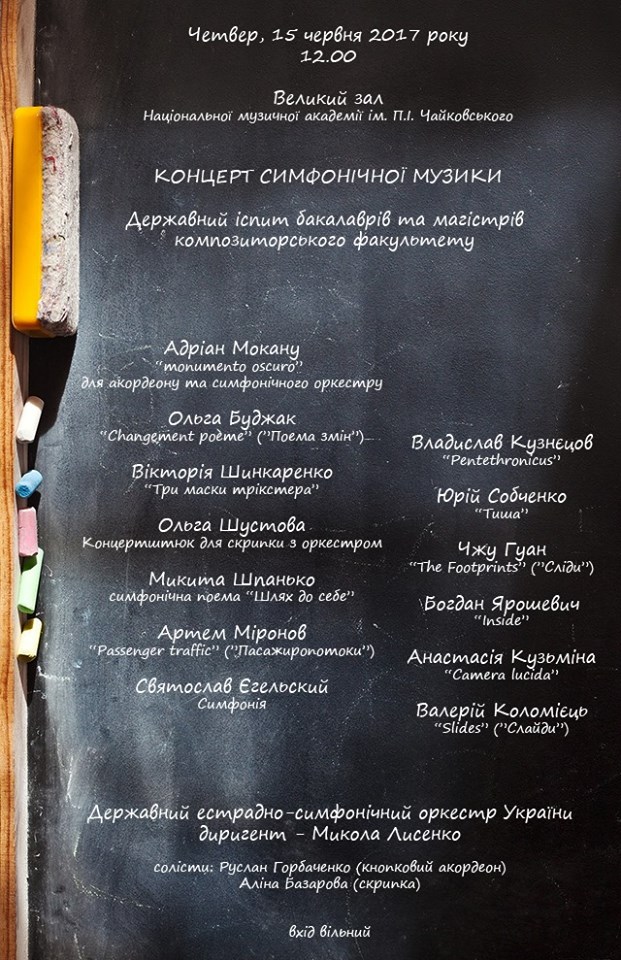 Четвер, 15 червня 2017 року
12.00
Великий зал
Національної музичної академії ім. П.І. Чайковського
КОНЦЕРТ СИМФОНІЧНОЇ МУЗИКИ
Державний іспит бакалаврів та магістрів
композиторського факультету
Адріан Мокану
“monumento oscuro”
для акордеону та симфонічного оркестру
Ольга Буджак
“Changement poème” (”Поема змін”)
Вікторія Шинкаренко
“Три маски трікстера”
Ольга Шустова
Концертштюк для скрипки з оркестром
Микита Шпанько
симфонічна поема “Шлях до себе”
Артем Міронов
“Passenger traffic” (”Пасажиропотоки”)
Святослав Єгельский
Симфонія
Владислав Кузнєцов
“Pentethronicus”
Юрій Собченко
“Тиша”
Чжу Гуан
“The Footprints” (”Сліди”)
Богдан Ярошевич
“Inside”
Анастасія Кузьміна
“Camera lucida”
Валерій Коломієць
“Slides” (”Слайди”)
Державний естрадно-симфонічний оркестр України
диригент - Микола Лисенко
солісти: Руслан Горбаченко (кнопковий акордеон)
Аліна Базарова (скрипка)
вхід вільний